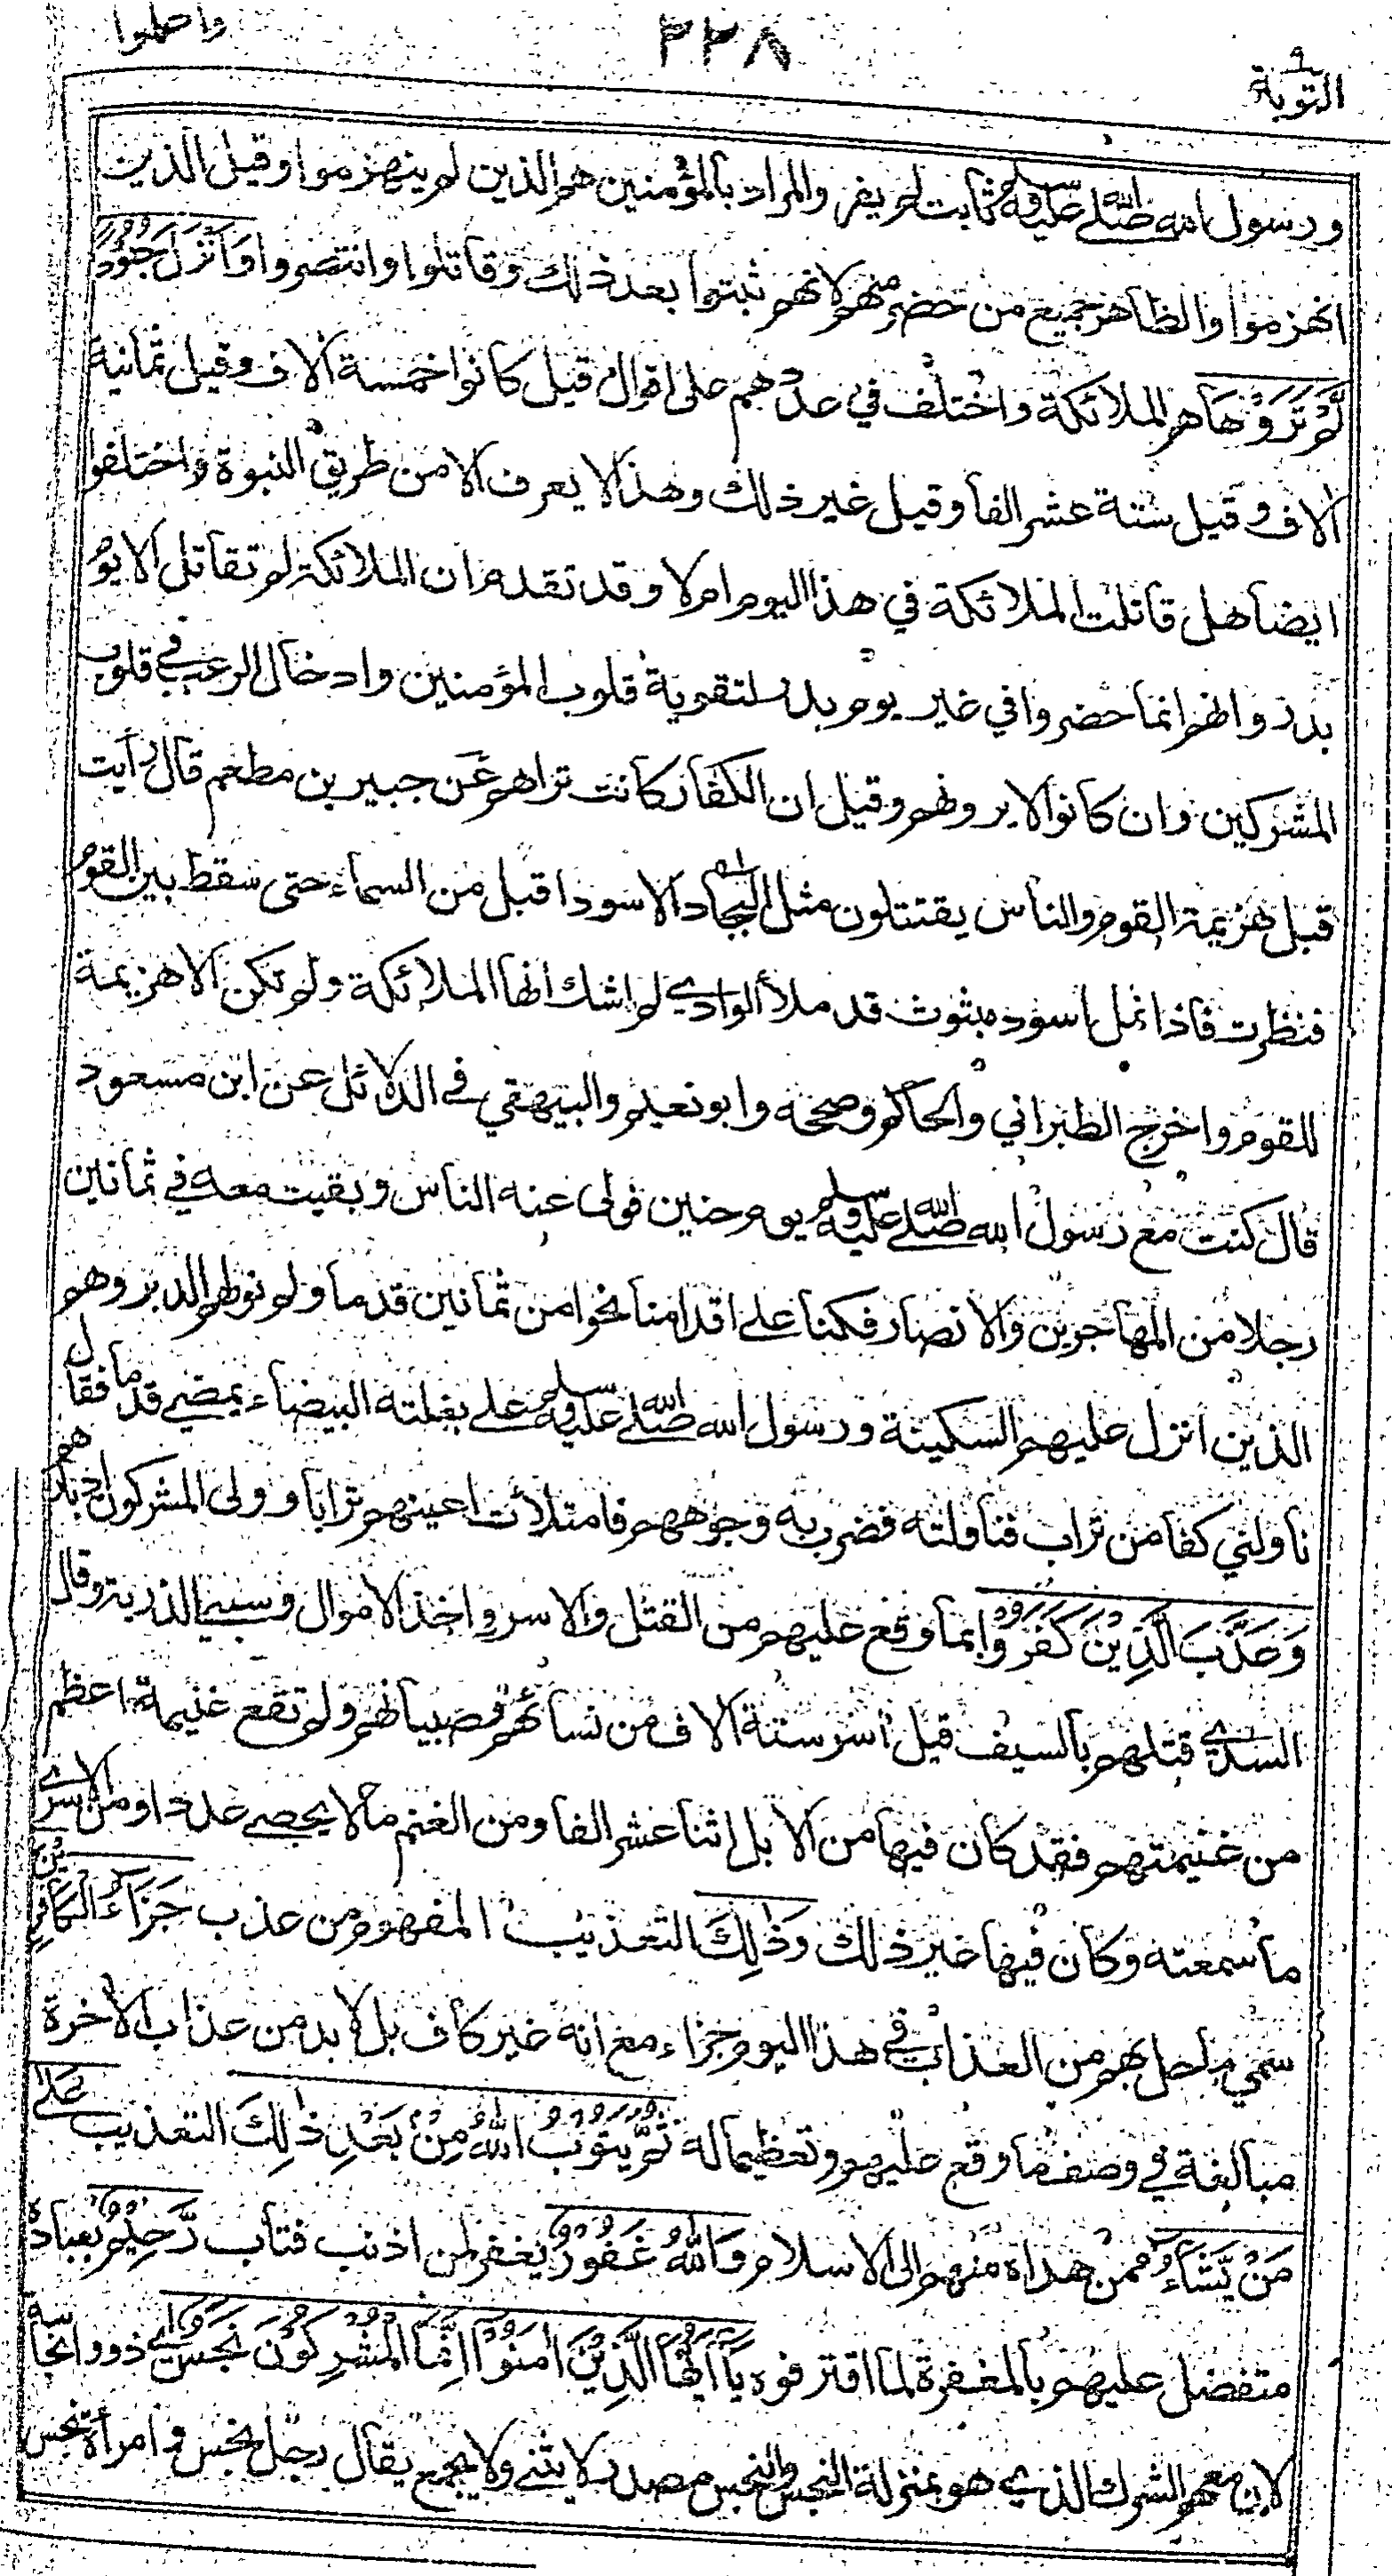 واعلموا
٣٢٨
التوبة ٩
ورسول الله صلى الله عليه وسلم ثابت لم يفر والمراد بالمؤمنين هم الذين لم ينهزموا وقيل الذين
انهزموا والظاهر جميع من حضر منهم لانهم ثبتوا بعد ذلك وقاتلوا وانتصروا وَاَنْزَلَ جُنُوْدًا
لَّمْ تَرَوْهَا هم الملائكة واختلف في عددهم على اقوال قيل كانوا خمسة آلاف وقيل ثمانية
آلاف وقيل ستة عشر الفا وقيل غير ذلك وهذا لا يعرف الا من طريق النبوة واختلفوا
ايضا هل قاتلت الملائكة في هذا اليوم ام لا وقد تقدم ان الملائكة لم تقاتل الا يوم
بدر وانهم انما حضروا في غير يوم بدر لتقوية قلوب المؤمنين وادخال الرعب في قلوب
المشركين وان كانوا لا يرونهم وقيل ان الكفار كانت تراهم عن جبير بن مطعم قال رأيت
قبل هزيمة القوم والناس يقتتلون مثل البجاد الاسود اقبل من السماء حتى سقط بين القوم
فنظرت فاذا نمل اسود مبثوث قد ملأ الوادي لم اشك انها الملائكة ولم تكن الا هزيمة
للقوم واخرج الطبراني والحاكم وصححه وابو نعيم والبيهقي في الدلائل عن ابن مسعود
قال كنت مع رسول الله صلى الله عليه وسلم يوم حنين فولى عنه الناس وبقيت معه في ثمانين
رجلا من المهاجرين والانصار فكنا على اقدامنا نحوا من ثمانين قدما ولم نولهم الدبر وهم
الذين انزل عليهم السكينة ورسول الله صلى الله عليه وسلم على بغلته البيضاء يمضي قدما فقال
ناولني كفا من تراب فناولته فضرب به وجوههم فامتلأت اعينهم ترابا وولى المشركون ادبارهم
وَعَذَّبَ الَّذِيْنَ كَفَرُوْا بما وقع عليهم من القتل والاسر واخذ الاموال وسبي الذرية وقال
السدي قتلهم بالسيف قيل أسر ستة آلاف من نسائهم وصبيانهم ولم تقع غنيمة اعظم
من غنيمتهم فقد كان فيها من الابل اثنا عشر الفا ومن الغنم ما لا يحصى عددا ومن الاسرى
ما سمعته وكان فيها غير ذلك وَذٰلِكَ التعذيب المفهوم من عذب جَزَآءُ الْكَافِرِيْنَ
سمي ما حل بهم من العذاب في هذا اليوم جزاء مع انه غير كاف بل لا بد من عذاب الآخرة
مبالغة في وصف ما وقع عليهم وتعظيما له ثُمَّ يَتُوْبُ اللّٰهُ مِنْ بَعْدِ ذٰلِكَ التعذيب عَلٰى
مَنْ يَّشَآءُ ممن هداه منهم الى الاسلام وَاللّٰهُ غَفُوْرٌ يغفر لمن اذنب فتاب رَّحِيْمٌ بعباده
متفضل عليهم بالمغفرة لما اقترفوه يَآ اَيُّهَا الَّذِيْنَ اٰمَنُوْٓا اِنَّمَا الْمُشْرِكُوْنَ نَجَسٌ اي ذوو نجاسة
لان معهم الشرك الذي هو بمنزلة النجس والنجس مصدر لا يثنى ولا يجمع يقال رجل نجس وامرأة نجس